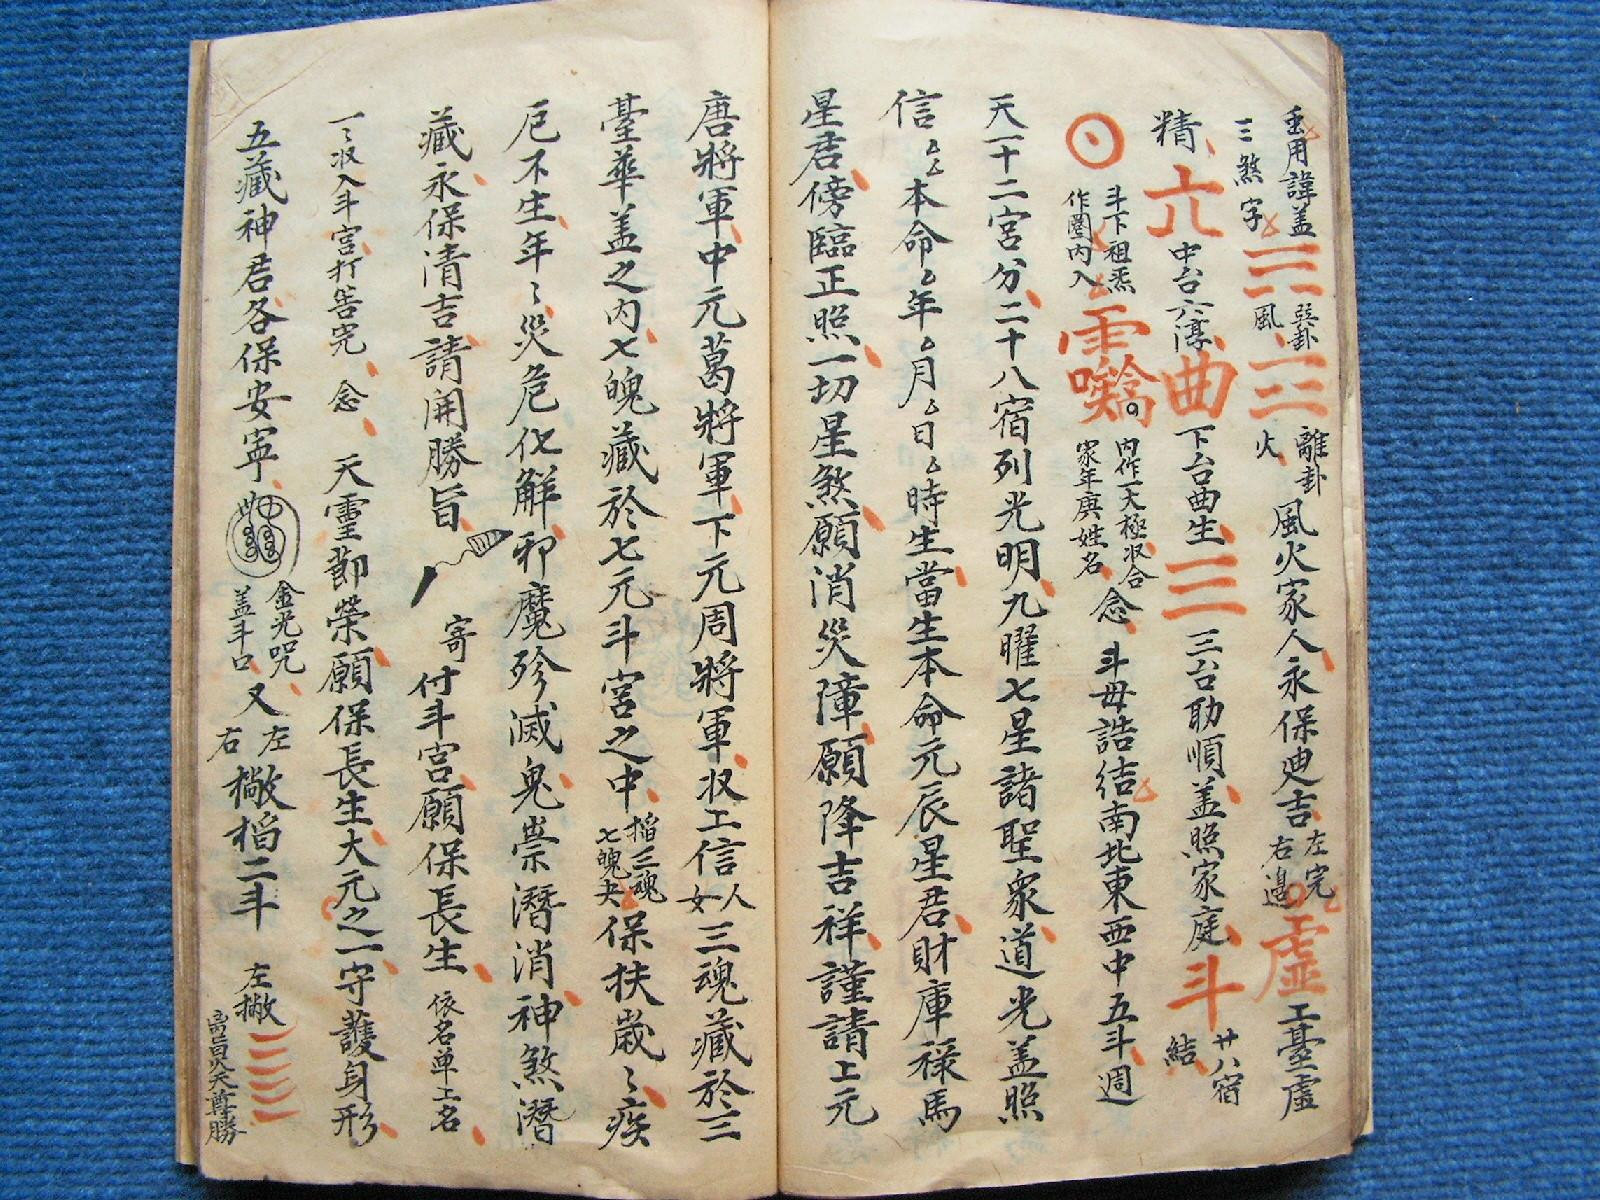 重用諱盖
三煞字
☴
巽卦
風
☲
離卦
火
風火家人永保迪吉
左完
右邊
虛
工臺虛
精
六
中台六淳
曲
下台曲生
三
三台助順盖照家庭
斗
廿八宿
結
斗下祖炁
作圈內入
內作一大極收合
家年庚姓名
念 斗母誥結南北東西中五斗週
天一十二宮分二十八宿列光明九曜七星諸聖衆道光盖照
信厶厶本命厶年厶月厶日厶時生當生本命元辰星君財庫禄馬
星君傍臨正照一切星煞願消災障願降吉祥謹請上元
唐將軍中元葛將軍下元周將軍収工信人女三魂藏於三
臺華盖之內七魄藏於七元斗宮之中
稲三魂
七魄夫
保扶歲〻疾
厄不生年〻災危化解邪魔殄滅鬼祟潛消神煞潛
藏永保清吉請開勝旨
寄付斗宮願保長生
依名单工名
一〻収入斗宮打筶完 念 天靈節榮願保長生大元之一守護身形
五藏神君各保安寧
金光咒
盖斗口
又
左
右
撇稻二斗
左撇